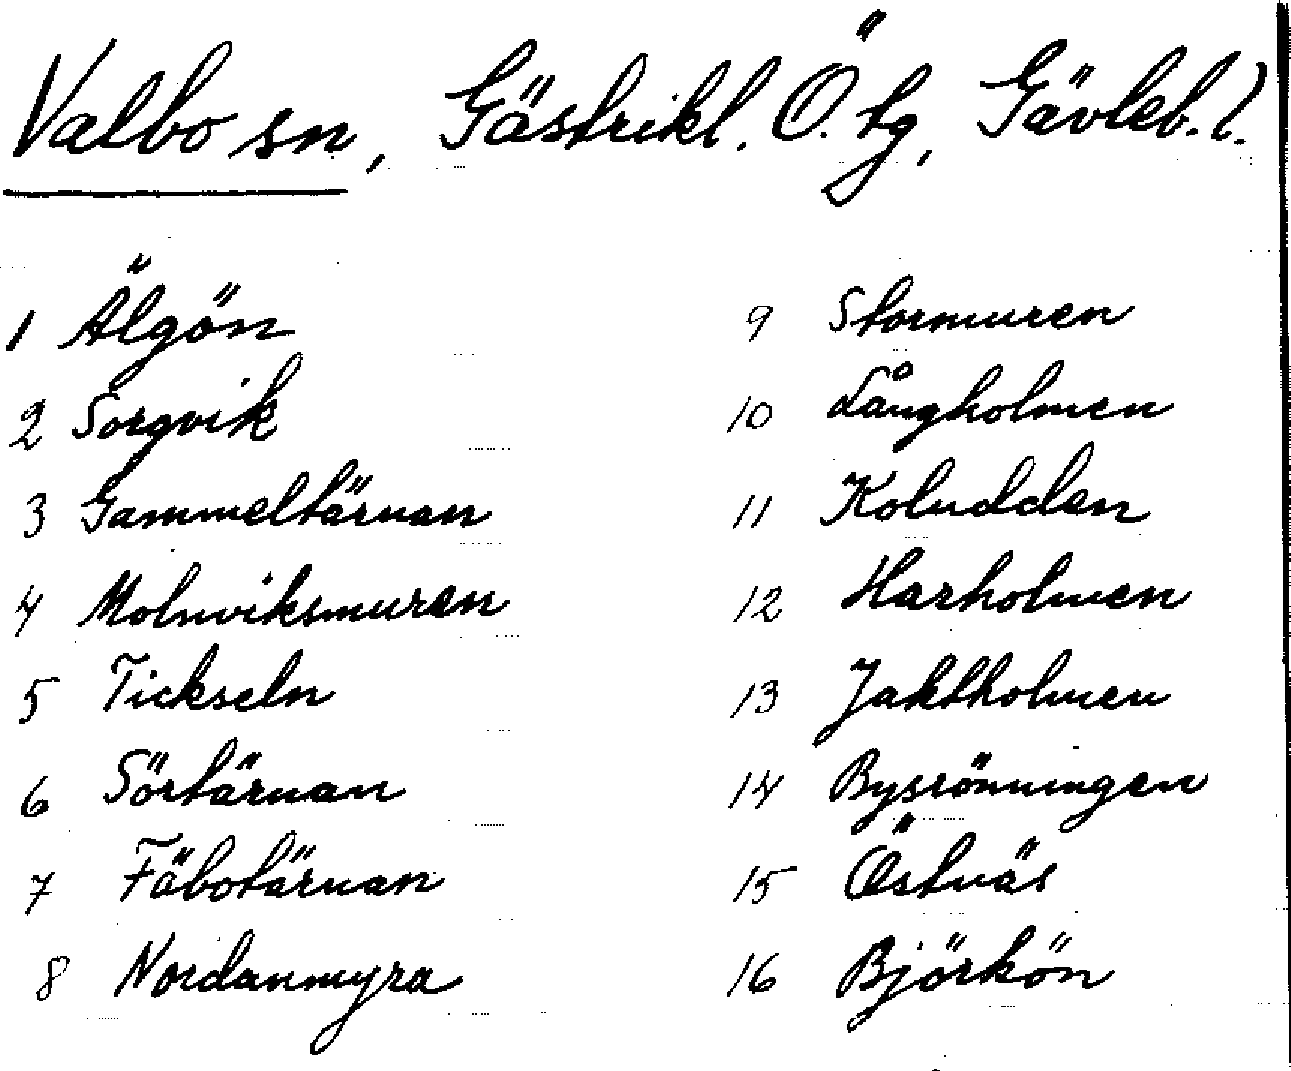 Valbo sn, Gästrikl. Ö. tg, Gävleb. l.
1 Älgön
2 Sorgvik
3 Gammeltärnan
4 Molnviksmuren
5 Tickseln
6 Sörtärnan
7 Fäbotärnan
8 Nordanmyra
9 Stormuren
10 Långholmen
11 Koludden
12 Harholmen
13 Jaktholmen
14 Bysrönningen
15 Östnäs
16 Björkön